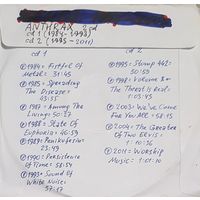 ANTHRAX 2 cd
cd 1 (1984-1993)
cd 2 (1995-2011)
cd 1
1984= Fistful Of
Metal= 31:45
1985= Spreading
The Disease=
43:35
1987= Among The
Living= 50:27
1988= State Of
Euphoria= 46:59
1989= Penikufesin=
1990= Persistence
Of Time= 58:
1993= Sound Of
White Noise=
57:
cd 2
1995= Stomp 442=
50:59
1998= Volume 8=
The Threat Is Real=
1:03:45
2003= We've Come
For You All= 58:19
2004= The Greater
Of Two Evils=
1:10:36
2011= Worship
Music= 1:01:10